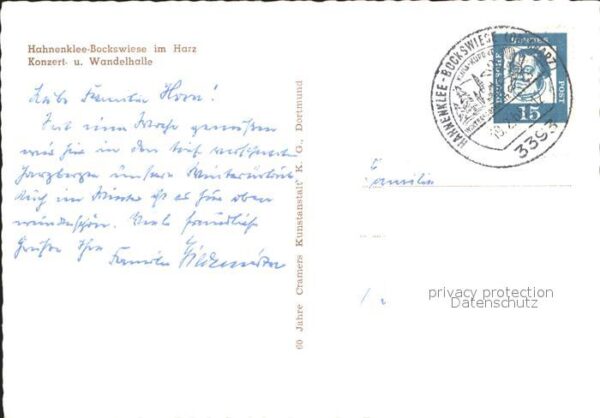 Hahnenklee-Bockswiese im Harz
Konzert- u. Wandelhalle
Liebe Familie Horn!
Seit einer Woche genießen
wir hier in den tief verschneiten
Harzbergen unseren Winterurlaub
Auch im Winter ist es hier oben
wunderschön. Viele freundliche
Grüße Ihre
Familie
60 Jahre Cramers Kunstanstalt K. G., Dortmund
HAHNENKLEE-BOCKSWIESE (OBERHARZ)
3393
DEUTSCHE BUNDESPOST
15
Familie
privacy protection
Datenschutz